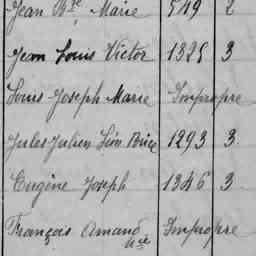 Jean Bte Marie 549 2
Jean Louis Victor 1325 3
Louis Joseph Marie Impropre
Jules Julien Léon Brice 1293 3
Eugène Joseph 1346 3
François Amand Impropre